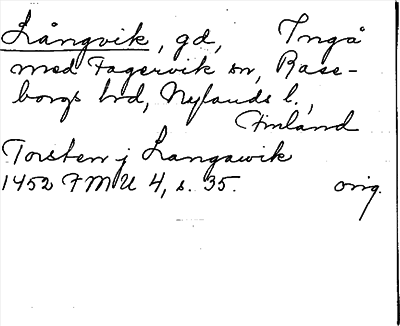 Långvik, gd, Ingå
med Fagervik sn, Rase-
borgs hd, Nylands l.,
Finland
Torsten j Langawik
1452 FMU 4, s. 35. orig.